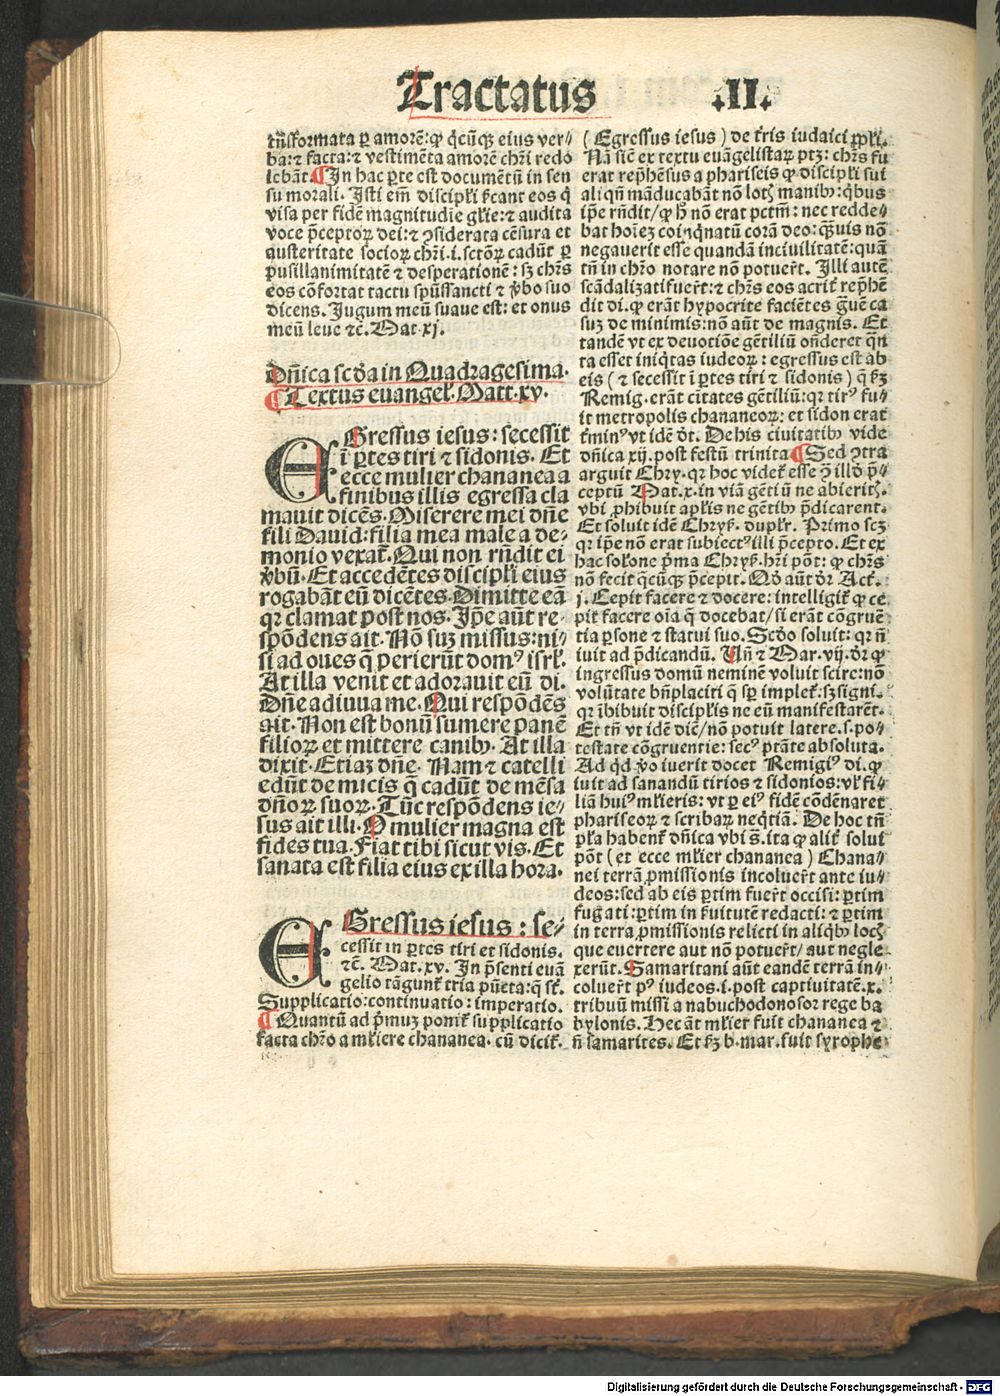 Tractatus .II.
trãsformata ꝑ amorẽ: ꝙ q̇cũqꝫ eius ver⸗
ba: ⁊ facta: ⁊ vestimẽta amorẽ chr̃i redo
lebãt. ¶ In hac ꝑte est documẽtũ in sen
su morali. Isti em̃ discipĺi ſ̃cant eos q̇
visa per fidẽ magnitudĩe gĺie: ⁊ audita
voce p̃ceptoꝝ dei: ⁊ ꝯsiderata cẽsura et
austeritate socioꝝ chr̃i .i. sctõꝝ cadũt ꝑ
pusillanimitatẽ ⁊ desperationẽ: sꝫ chr̃s
eos cõfortat tactu spũssancti ⁊ ṽbo suo
dicens. Jugum meũ suaue est: et onus
meũ leue ⁊c̃. Mat. xj.
Dñica scďa in Quadragesima.
¶ Textus euangeĺ. Matt. xv.
EGressus iesus: secessit
ĩ ꝑtes tiri ⁊ sidonis. Et
ecce mulier chananea a
finibus illis egressa cla
mauit dicẽs. Miserere mei dñe
fili Dauid: filia mea male a de⸗
monio vexat̃. Qui non rñdit ei
ṽbũ. Et accedẽtes discipĺi eius
rogabãt eũ dicẽtes. Dimitte eã
qꝛ clamat post nos. Ip̃e aũt re⸗
spõdens ait. Nõ suꝫ missus: ni⸗
si ad oues q̃ perierũt domꝰ isrĺ.
At illa venit et adorauit eũ di.
Dñe adiuua me. Qui respõdẽs
ait. Non est bonũ sumere panẽ
filioꝝ et mittere canibꝫ. At illa
dixit. Etiaꝫ dñe. Nam ⁊ catelli
edũt de micis q̃ cadũt de mẽsa
dñoꝝ suoꝝ. Tũc respõdens ie⸗
sus ait illi. O mulier magna est
fides tua. Fiat tibi sicut vis. Et
sanata est filia eius ex illa hora.
EGressus iesus: se⸗
cessit in ꝑtes tiri et sidonis.
⁊c̃. Mat. xv. In p̃senti euã
gelio tãgunt̃ tria pũcta: q̃ st̃.
Supplicatio: continuatio: imperatio.
¶ Quantũ ad p̃muꝫ ponit̃ supplicatio
facta chr̃o a mĺiere chananea. cũ dicit̃.
(Egressus iesus) de t̃ris iudaici ꝓpĺi.
Nã sic̃ ex textu euãgelistaꝝ ptꝫ: chr̃s fu
erat rep̃hẽsus a phariseis ꝙ discipĺi sui
aliqñ mãducabãt nõ lot̃ manibꝫ: q̇bus
ip̃e rñdit/ ꝙ h̃ nõ erat pctm̃: nec redde⸗
bat hoĩeꝫ coinq̇natũ corã deo: q̃uis nõ
negauerit esse quandã inciuilitatẽ: quã
tñ in chr̃o notare nõ potuer̃t. Illi autẽ
scãdalizati fuer̃t: ⁊ chr̃s eos acrit̃ rep̃hẽ
dit di. ꝙ erãt hypocrite faciẽtes g̃uẽ ca
suꝫ de minimis: nõ aũt de magnis. Et
tandẽ vt ex deuotiõe gẽtiliũ oñderet q̃n
ta esset iniq̇tas iudeoꝝ: egressus est ab
eis (⁊ secessit ĩ ꝑtes tiri ⁊ sidonis) q̃ ẜꝫ
Remig. erãt citates gẽtiliũ: qꝛ tirꝰ fu⸗
it metropolis chananeoꝝ: et sidon erat
t̃minꝰ vt idẽ d̃t. De his ciuitatibꝫ vide
dñica xij. post festũ trinita. ¶ Sed ꝯtra
arguit Chry. qꝛ hoc videt̃ esse ꝯ̃ illď p̃⸗
ceptũ Mat. x. in viã gẽtiũ ne abierit̃.
vbi ꝓhibuit apĺis ne gẽtibꝫ p̃dicarent.
Et soluit idẽ Chryſ. dupĺr. Primo scꝫ
qꝛ ip̃e nõ erat subiectꝰ illi p̃cepto. Et ex
hac solõne p̃ma Chryſ. hr̃i põt: ꝙ chr̃s
nõ fecit q̇cũqꝫ p̃cepit. Qď aũt ďr Act̃.
j. Cepit facere ⁊ docere: intelligit̃ ꝙ ce
pit facere oĩa q̃ docebat/ si erãt cõgruẽ
tia ꝑsone ⁊ statui suo. Scďo soluit: qꝛ ñ
iuit ad p̃dicandũ. Uñ ⁊ Mar. vij. ďr ꝙ
ingressus domũ neminẽ voluit scire: nõ
volũtate bñplaciti q̃ sꝑ implet̃: sꝫ signi.
qꝛ ĩhibuit discipĺis ne eũ manifestarẽt.
Et tñ vt idẽ dic̃/ nõ potuit latere .s. po⸗
testate cõgruentie: secꝰ ptãte absoluta.
Ad q̇d ṽo iuerit docet Remigiꝰ di. ꝙ
iuit ad sanandũ tirios ⁊ sidonios: vĺ fi⸗
liã huiꝰ mĺieris: vt ꝑ eiꝰ fidẽ cõdẽnaret
phariseoꝝ ⁊ scribaꝝ neq̇tiã. De hoc tñ
pĺa habent̃ dñica vbi s̃. ita ꝙ alit̃ solui
põt (et ecce mĺier chananea) Chana⸗
nei terrã ꝓmissionis incoluer̃t ante iu⸗
deos: sed ab eis ꝑtim fuer̃t occisi: ꝑtim
fugati: ꝑtim in ẜuitutẽ redacti: ⁊ ꝑtim
in terra ꝓmissionis relicti in aliq̇bꝫ loc̃
que euertere aut nõ potuer̃t/ aut negle
xerũt. Samaritani aũt eandẽ terrã in⸗
coluer̃t pꝰ iudeos .i. post captiuitatẽ .x.
tribuũ missi a nabuchodonosor rege ba
bylonis. Hec ãt mĺier fuit chananea ⁊
ñ samarites. Et ẜꝫ b. mar. fuit syrophe⸗
Digitalisierung gefördert durch die Deutsche Forschungsgemeinschaft - DFG